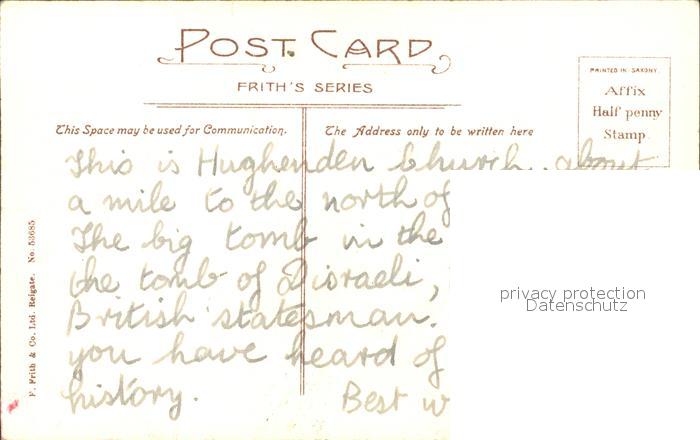 POST CARD
FRITH'S SERIES
PRINTED IN SAXONY.
Affix
Half penny
Stamp
This Space may be used for Communication.
The Address only to be written here
This is Hughenden Church, about
a mile to the north of
The big tomb in the
the tomb of Disraeli,
British statesman.
you have heard of
history. Best w
F. Frith & Co. Ltd. Reigate. No. 53685
privacy protection
Datenschutz